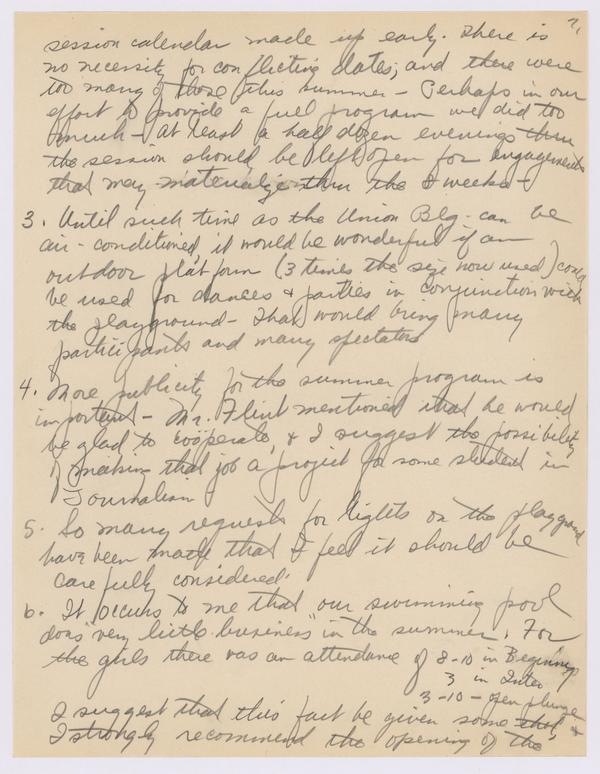 7.
session calendar made up early. There is
no necessity for conflicting dates, and there were
too many of those this summer - Perhaps in our
effort to provide a full program we did too
much - at least a half dozen evenings thru
the session should be left open for engagements
that may materialize thru the 8 weeks -
3. Until such time as the Union Blg. can be
air-conditioned it would be wonderful if an
outdoor platform (3 times the size now used) could
be used for dances & parties in conjunction with
the playground - That would bring many
participants and many spectators
4. More publicity for the summer program is
important - Mr. Flint mentioned that he would
be glad to coöperate, & I suggest the possibility
of making that job a project for some student in
Journalism
5. So many requests for lights on the playground
have been made that I feel it should be
carefully considered.
6. It occurs to me that our swimming pool
does "very little business" in the summer. For
the girls there was an attendance of 8-10 in Beginning
3 in Inter
3-10 - open plunge
I suggest that this fact be given some &
I strongly recommend the opening of the